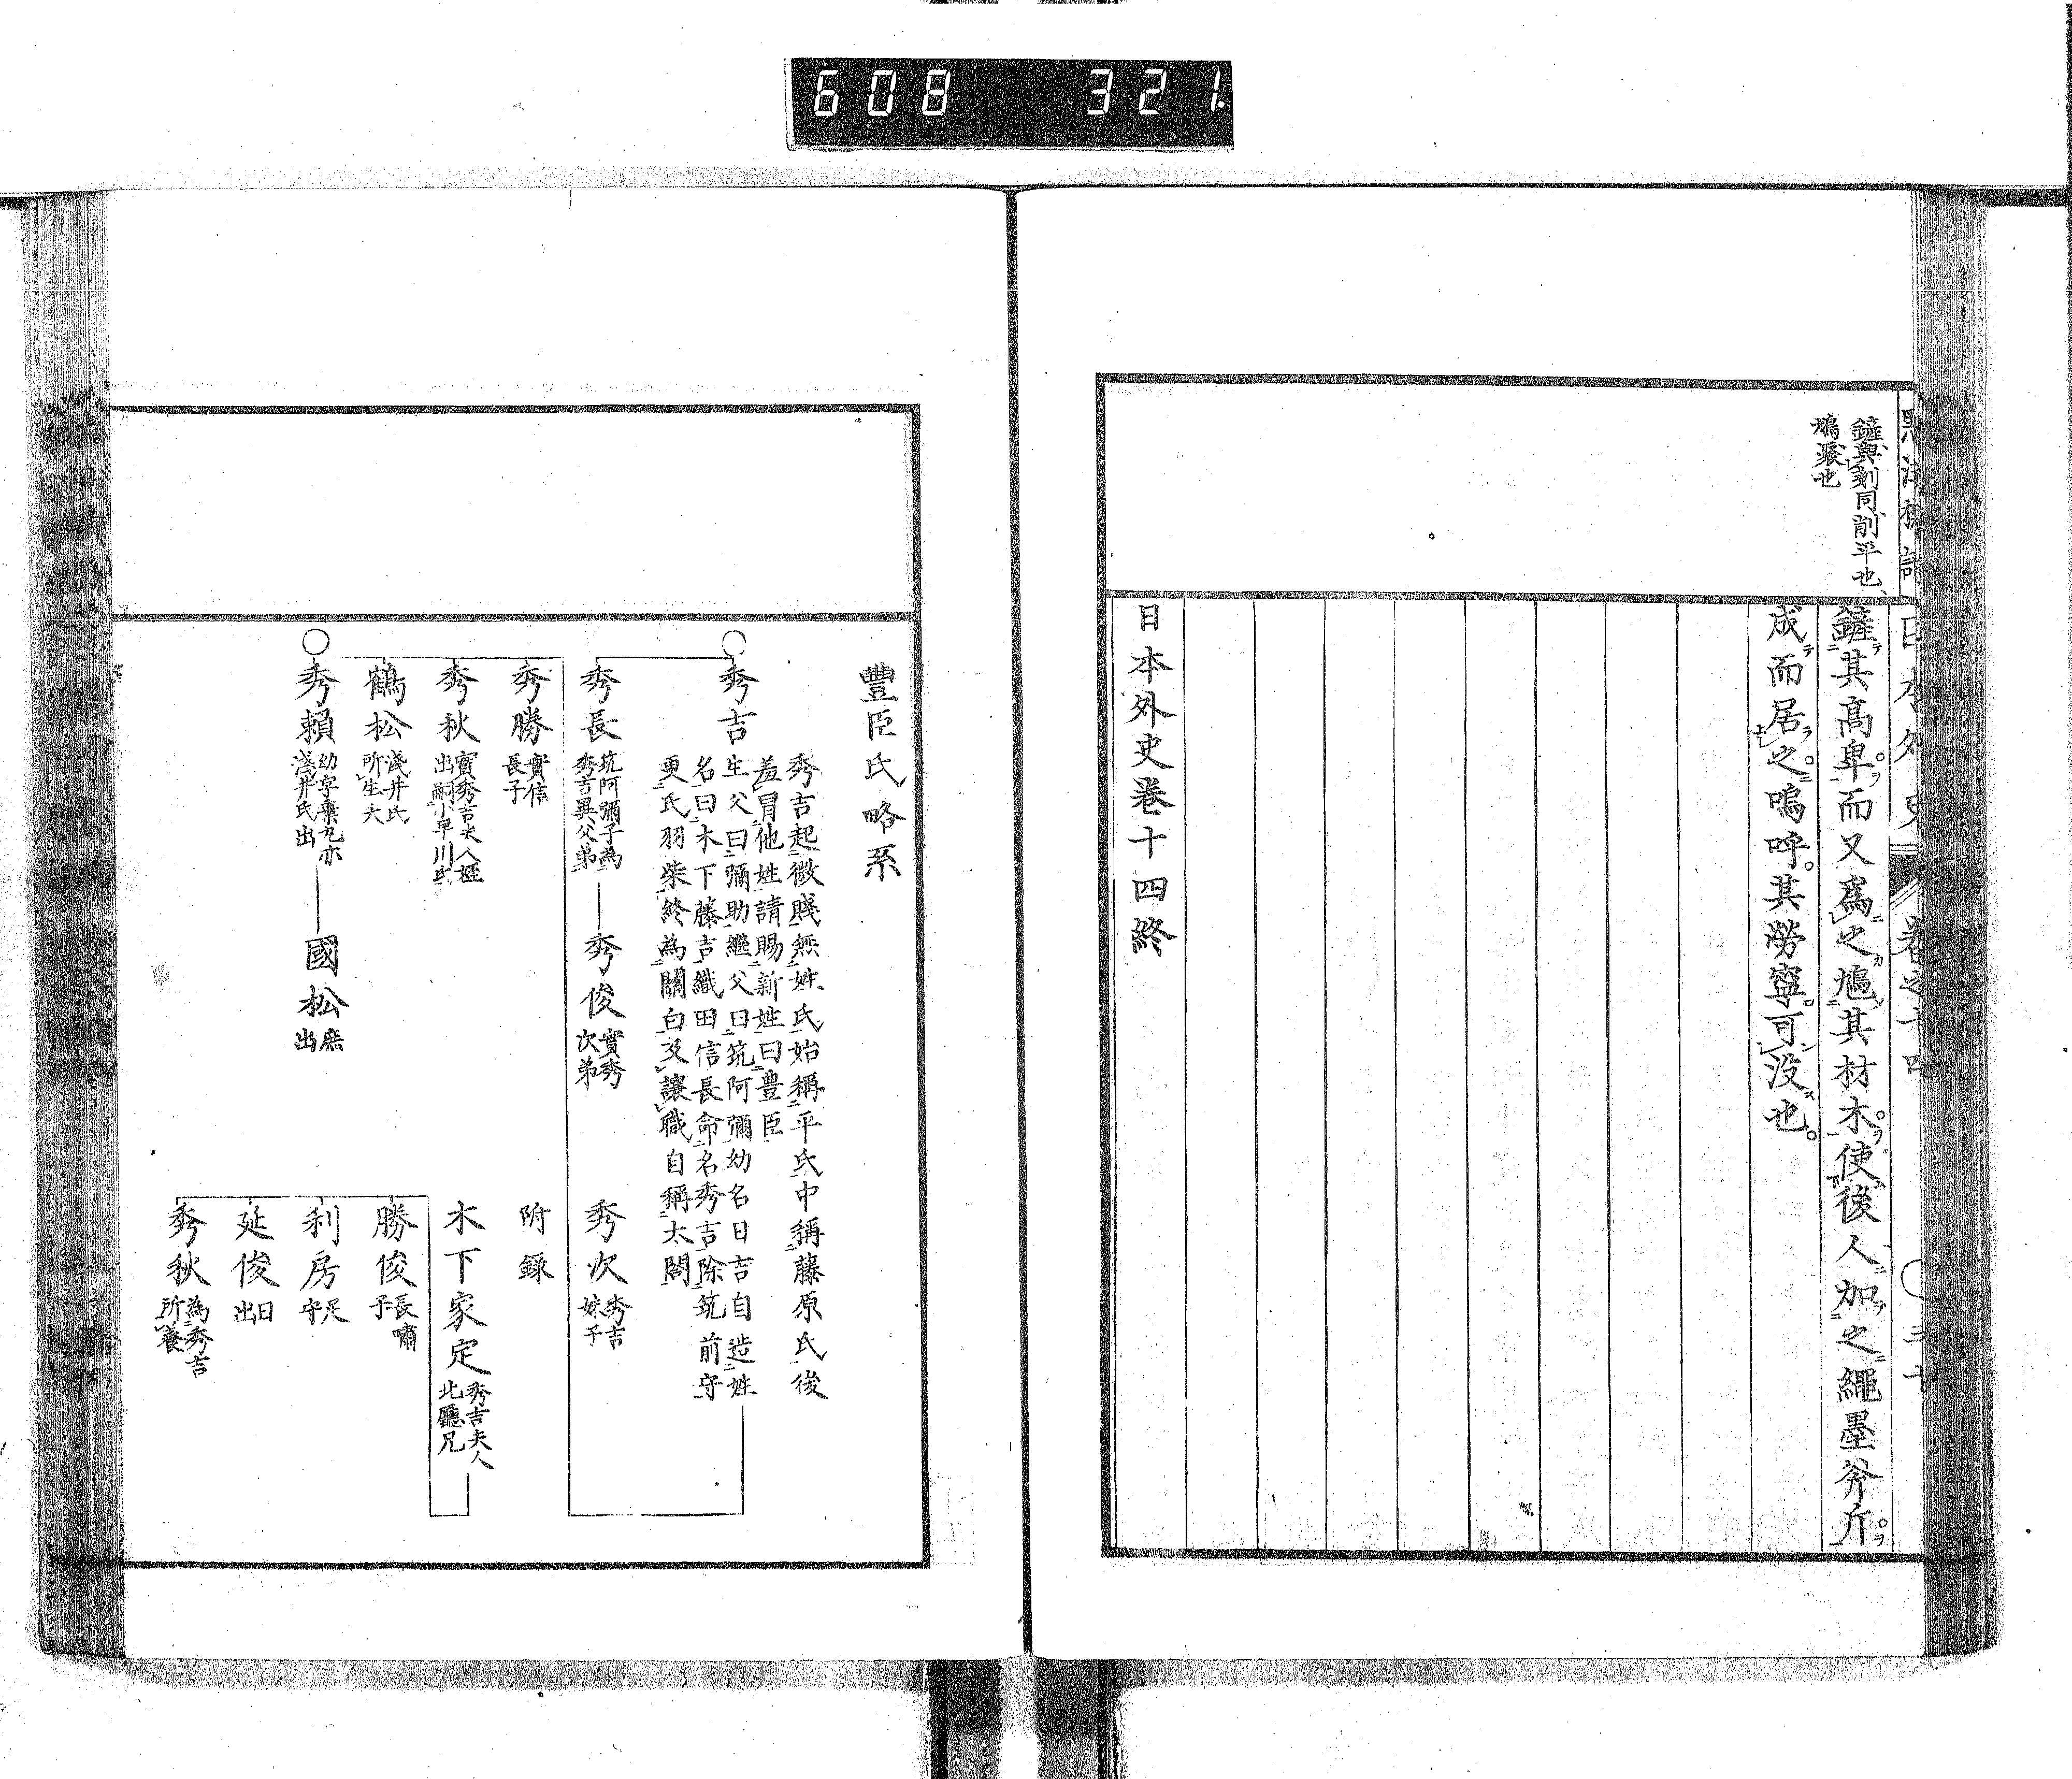 608 321
鏟與剗同、削平也、
鳩聚也
鏟其高卑而又爲之鳩其材木使後人加之繩墨斧斤
成而居之嗚呼其勞寧可没也
日本外史巻十四終
豐臣氏略系
秀吉起微賤無姓氏始稱平氏中稱藤原氏後
羞冒他姓請賜新姓曰豊臣
秀吉
生父曰彌助繼父曰筑阿彌幼名日吉自造姓
名曰木下藤吉織田信長命名秀吉除筑前守
更氏羽柴終為關白及讓職自稱太閤
秀長 筑阿彌子為
秀吉異父弟
秀俊 實秀
次弟
秀次 秀吉
姊子
秀勝 實信
長子
秀秋 實秀吉夫人姪
出嗣小早川氏
鶴松 淺井氏
所生夭
秀頼 幼字棄丸亦
淺井氏出
國松 庶
出
附錄
木下家定 秀吉夫人
北廳兄
勝俊 長嘯
子
利房 足
守
延俊 日
出
秀秋 為秀吉
所養